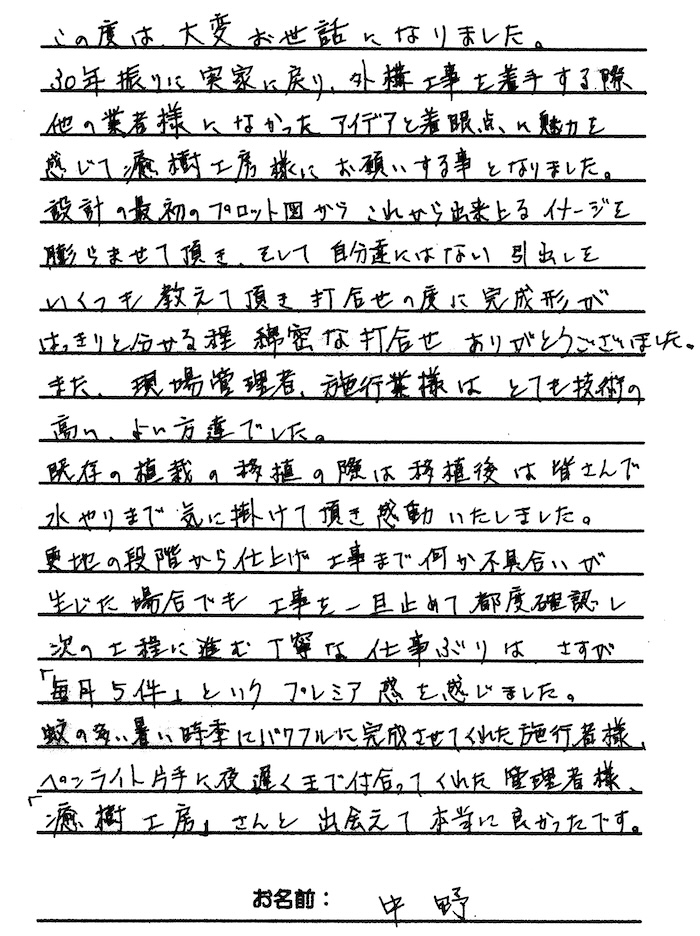 この度は、大変お世話になりました。
30年振りに実家に戻り、外構工事を着手する際
他の業者様になかったアイデアと着眼点に魅力を
感じて癒樹工房様にお願いする事となりました。
設計の最初のプロット図からこれから出来上るイメージを
膨らませて頂き、そして自分達にはない引出しを
いくつも教えて頂き打合せの度に完成形が
はっきりと分せる程綿密な打合せありがとうございました。
また、現場管理者、施行業様はとても技術の
高い、よい方達でした。
既存の植栽の移植の際は移植後は皆さんで
水やりまで気に掛けて頂き感動いたしました。
更地の段階から仕上げ工事まで何か不具合いが
生じた場合でも工事を一旦止めて都度確認し
次の工程に進む丁寧な仕事ぶりはさすが
「毎月5件」というプレミア感を感じました。
蚊の多い暑い時季にパワフルに完成させてくれた施行者様、
ペンライト片手に夜遅くまで付合ってくれた管理者様、
「癒樹工房」さんと出会えて本当に良かったです。
お名前： 中野